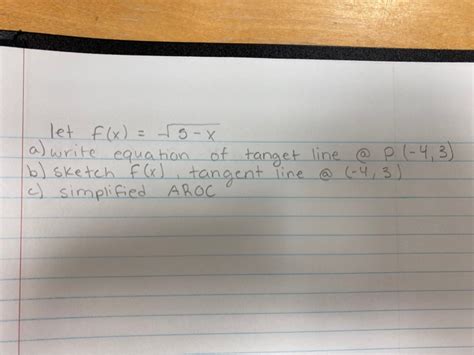 let f(x) = √5-x
a) write equation of tanget line @ P (-4, 3)
b) sketch f(x), tangent line @ (-4, 3)
c) simplified AROC